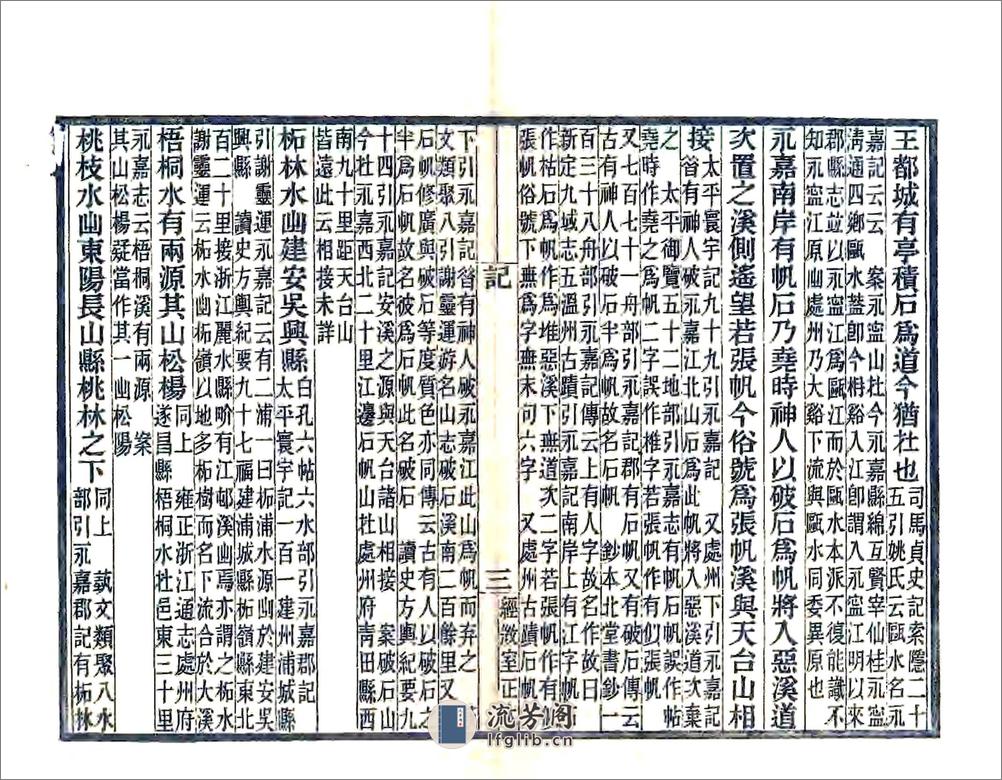 王都城有亭積石爲道今猶在也
司馬貞史記索隱二十
五引姚氏云甌水名永
嘉記云云　案永寧山在今永嘉縣綿互賢宰仙桂永寧
淸通四鄉甌水蓋卽今枏谿入江卽謂入永寧江明以來
郡縣志竝以永寧江爲甌江而於甌水本派不復能識不
知永寧江原出處州乃大谿下流與甌水同委異原也
永嘉南岸有帆石乃堯時神人以破石爲帆將入惡溪道
次置之溪側遙望若張帆今俗號爲張帆溪與天台山相
接
太平寰宇記九十九引永嘉記　又處州下引永嘉記
昔有神人破永嘉江北山石爲此帆將入惡溪道次棄
之　太平御覽五十二地部引永嘉志有石帆誤作帖
堯時作堯之爲帆二字誤作椎字若張帆作有似張帆
又七百七十一舟部引永嘉記郡有石帆又有破石傳云
古有神人以破石半爲帆故名　鈔本北堂書鈔一
百三十八舟部引永嘉記傳云上有人字故名作故曰
新定九域志五溫州古蹟引永嘉記南岸上有江字帆
作枯石爲帆作爲堆惡溪下無道次二字若張帆作有
張帆俗號下無爲字無末句六字　又處州古蹟石帆
記
三
經微室正
下引永嘉記昔有神人破永嘉江此山爲帆而弃之
文類聚八引謝靈運游名山志破石溪南二百餘里又
石帆修廣與破石等度質色亦同傳云古有人以破石之
半爲石帆故名彼爲石帆此名破石　讀史方輿紀要九
十四引永嘉記安溪之源與天台諸山相接　案破石
今在永嘉西北二十里江邊石帆山在處州府靑田縣西
南九十里距天台山
皆遠此云相接未詳
柘林水出建安吳興縣
白孔六帖六水部引永嘉郡記
太平寰宇記一百一建州浦城縣
引謝靈運永嘉記云有二浦一曰柘浦水源出於建安吳
興縣　讀史方輿紀要九十七福建浦城縣柘嶺縣東北
百二十里接浙江麗水縣畍有江郫溪出焉亦謂之柘水
謝靈運云柘水出柘嶺以地多柘樹而名下流合於大溪
梧桐水有兩源其山松楊
同上　雍正浙江通志處州府
遂昌縣梧桐水在邑東三十里
永嘉志云梧桐溪有兩源　案
其山松楊疑當作其一出松陽
桃枝水出東陽長山縣桃林之下
同上　蓺文類聚八水
部引永嘉郡記有柘林
流芳閣
lfglib.cn